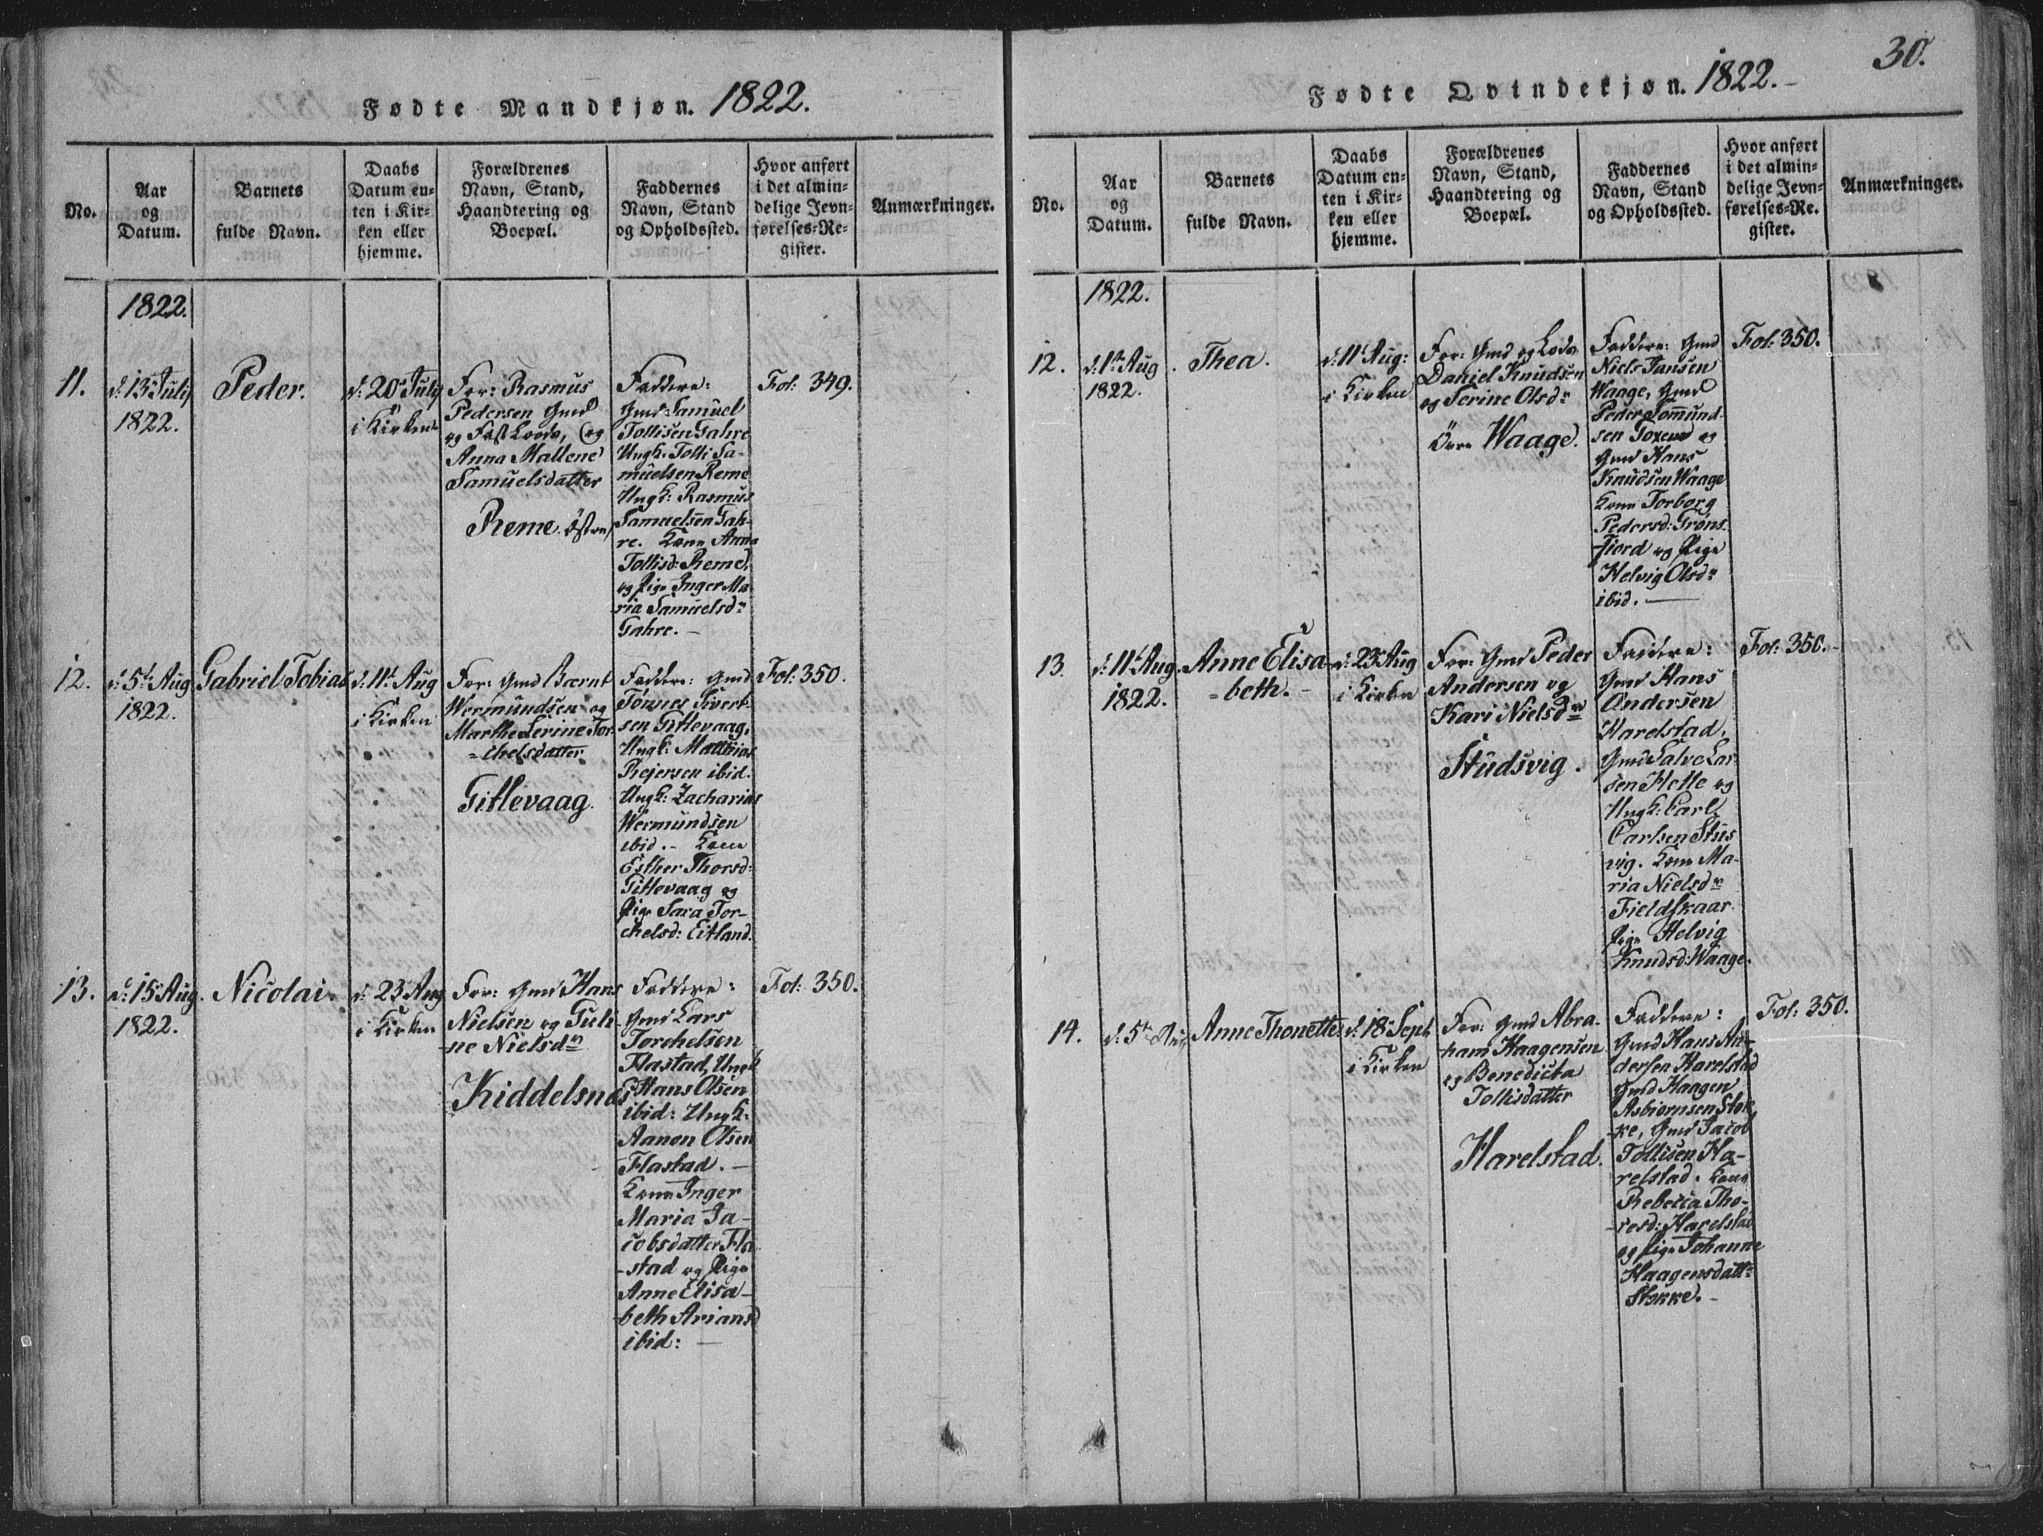 Fødte Mandkjøn. 1822.
No.
Aar
og
Datum.
Barnets
fulde Navn.
Daabs
Datum en-
ten i Kir-
ken eller
hjemme.
Forældrenes
Navn, Stand,
Haandtering og
Boepæl.
Faddernes
Navn, Stand
og Opholdssted.
Hvor anført
i det almin-
delige Jevn-
førelses-Re-
gister.
Anmærkninger.
1822.
11.
d: 13 July
1822.
Peder.
d: 20 July
i Kirken
For: Rasmus
Pedersen Gmd
og Lods, og
Anna Mallene
Samuelsdatter
Reme Østre
Faddere:
Gmd Samuel
Tollisen Jahre
Ungk: Tolli Sa-
muelsen Reme
Ungk: Rasmus
Samuelsen Jah-
re. Kone Anna
Tollisd: Reme,
og Pige Inger Ma-
ria Samuelsdr
Jahre. —
Fol: 349.
12.
d: 5t Aug
1822.
Gabriel Tobias
d: 11t Aug
i Kirken
For: Gmd Bærnt
Wermundsen og
Marthe Serine Tor-
-chelsdatter
Gitlevaag.
Faddere: Gmd
Tønnes Sivert-
sen Gitlevaag,
Ungk: Matthias
Rejersen ibid.
Ungk: Zacharias
Wermundsen
ibid. - Kone
Esther Thorsd:
Gitlevaag og
Pige Sara Tor-
chelsd: Eitland.
Fol: 350.
13.
d: 15 Aug.
1822.
Nicolai.
d: 23 Aug
i Kirken
For: Gmd Hans
Nielsen og Guh-
ne Nielsdr
Kiddelsnæs
Faddere:
Gmd Lars
Torchelsen
Flastad, Ungk
Hans Olsen
ibid: Ungk:
Aanon Olsen
Flastad. —
Kone Inger
Maria Ja-
cobsdatter Fla-
-stad og Pige
Anne Elisa-
beth Ariansd
ibid: —
Fol: 350.
30.
Fødte Qvindekjøn. 1822. -
No.
Aar
og
Datum.
Barnets
fulde Navn.
Daabs
Datum en-
ten i Kir-
ken eller
hjemme.
Forældrenes
Navn, Stand,
Haandtering og
Boepæl.
Faddernes
Navn, Stand
og Opholdssted.
Hvor anført
i det almin-
delige Jevn-
førelses-Re-
gister.
Anmærkninger.
1822.
12.
d: 1t Aug
1822.
Thea.
d: 11t Aug:
i Kirken
For: Gmd og Lods
Daniel Knudsen
og Serine Olsdr
Øvre Waage.
Faddere: Gmd
Niels Jansen
Waage, Gmd
Peder Tommund-
sen og
Gmd Hans
Knudsen Waage
Kone Torborg
Pedersd: Grøns-
fiord og Pige
Helvig Olsdr
ibid. —
Fol: 350.
13.
d: 11t Aug.
1822.
Anne Elisa-
-beth. -
d: 23 Aug
i Kirken
For: Gmd Peder
Andersen og
Kari Nielsdr
Studsvig.
Faddere:
Gmd Hans
Andersen
Harelstad,
Gmd Salve Lar-
sen Hette og
Ungk: Carl
Carlsen Stus-
vig. Kone Ma-
ria Nielsdr
Fieldskaar
Pige Helvig
Knudsd: Waage.
Fol: 350.
14.
d: 5t
Anne Thonette
d: 18 Sept
i Kirken
For: Gmd Abra-
ham Haagensen
og Benedicta
Tollisdatter
Harelstad.
Faddere:
Gmd Hans An-
dersen Harelstad
Gmd Haagen
Asbiørnsen Støk-
ke, Gmd Jacob
Tollisen Ha-
relstad. Kone
Rebecca Tho-
resd: Harelstad
og Pige Johanne
Haagensdattr
Støkke. -
Fol: 350.